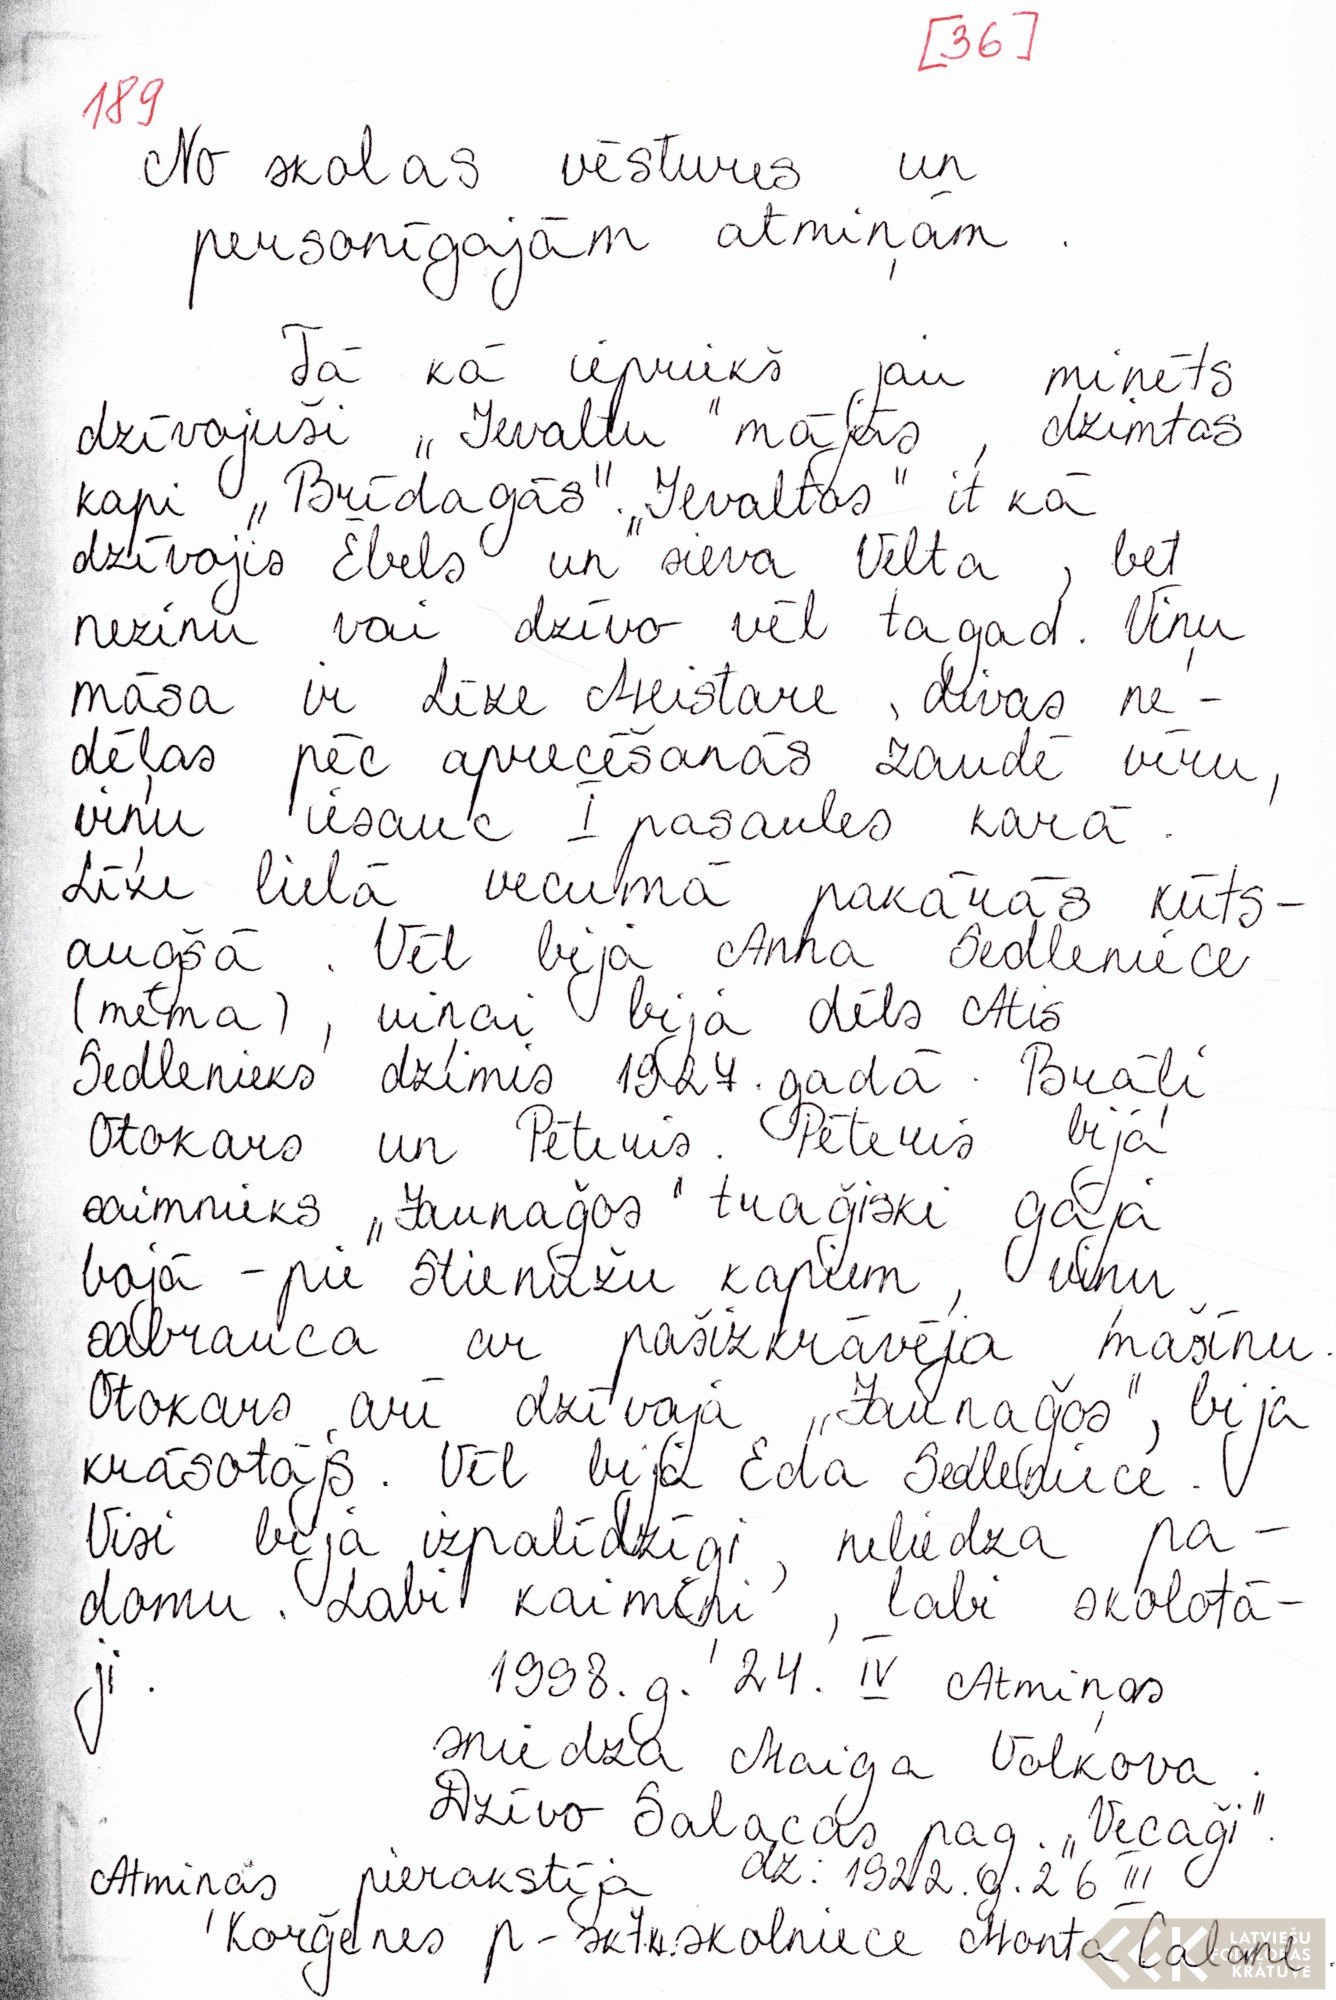 [36]
189
No skolas vēstures un
personīgajām atmiņām.
Tā kā iepriekš jau minēts
dzīvojuši „Ievaltu" mājās, dzimtas
kapi „Brīdagās". „Ievaltos" it kā
dzīvojis Ēbels un sieva Velta, bet
nezinu vai dzīvo vēl tagad. Viņu
māsa ir Līze Meistare, divas ne-
dēļas pēc aprecēšanās zaudē vīru,
viņu iesauc I pasaules karā.
Līze lielā vecumā pakārās kūts-
augšā. Vēl bija Anna Sedleniece
(mēma), viņai bija dēls Atis
Sedlenieks dzimis 1927. gadā. Brāļi
Otokars un Pēteris. Pēteris bija
saimnieks „Jaunaģos" traģiski gāja
bojā - pie Stienūžu kapiem, viņu
sabrauca ar pašizkrāvēja mašīnu.
Otokars arī dzīvoja „Jaunaģos", bija
krāsotājs. Vēl bija Eda Sedleniece.
Visi bija izpalīdzīgi, neliedza pa-
domu. Labi kaimiņi, labi skolotā-
ji.
1998. g. 24. IV Atmiņas
sniedza Maiga Voļkova.
Dzīvo Salacas pag. „Vecaģi".
dz: 1922. g. 26 III
Atmiņas pierakstīja
Korģenes p-sk 7.kl. skolniece Monta Calane.
LATVIEŠU
FOLKLORAS
KRĀTUVE